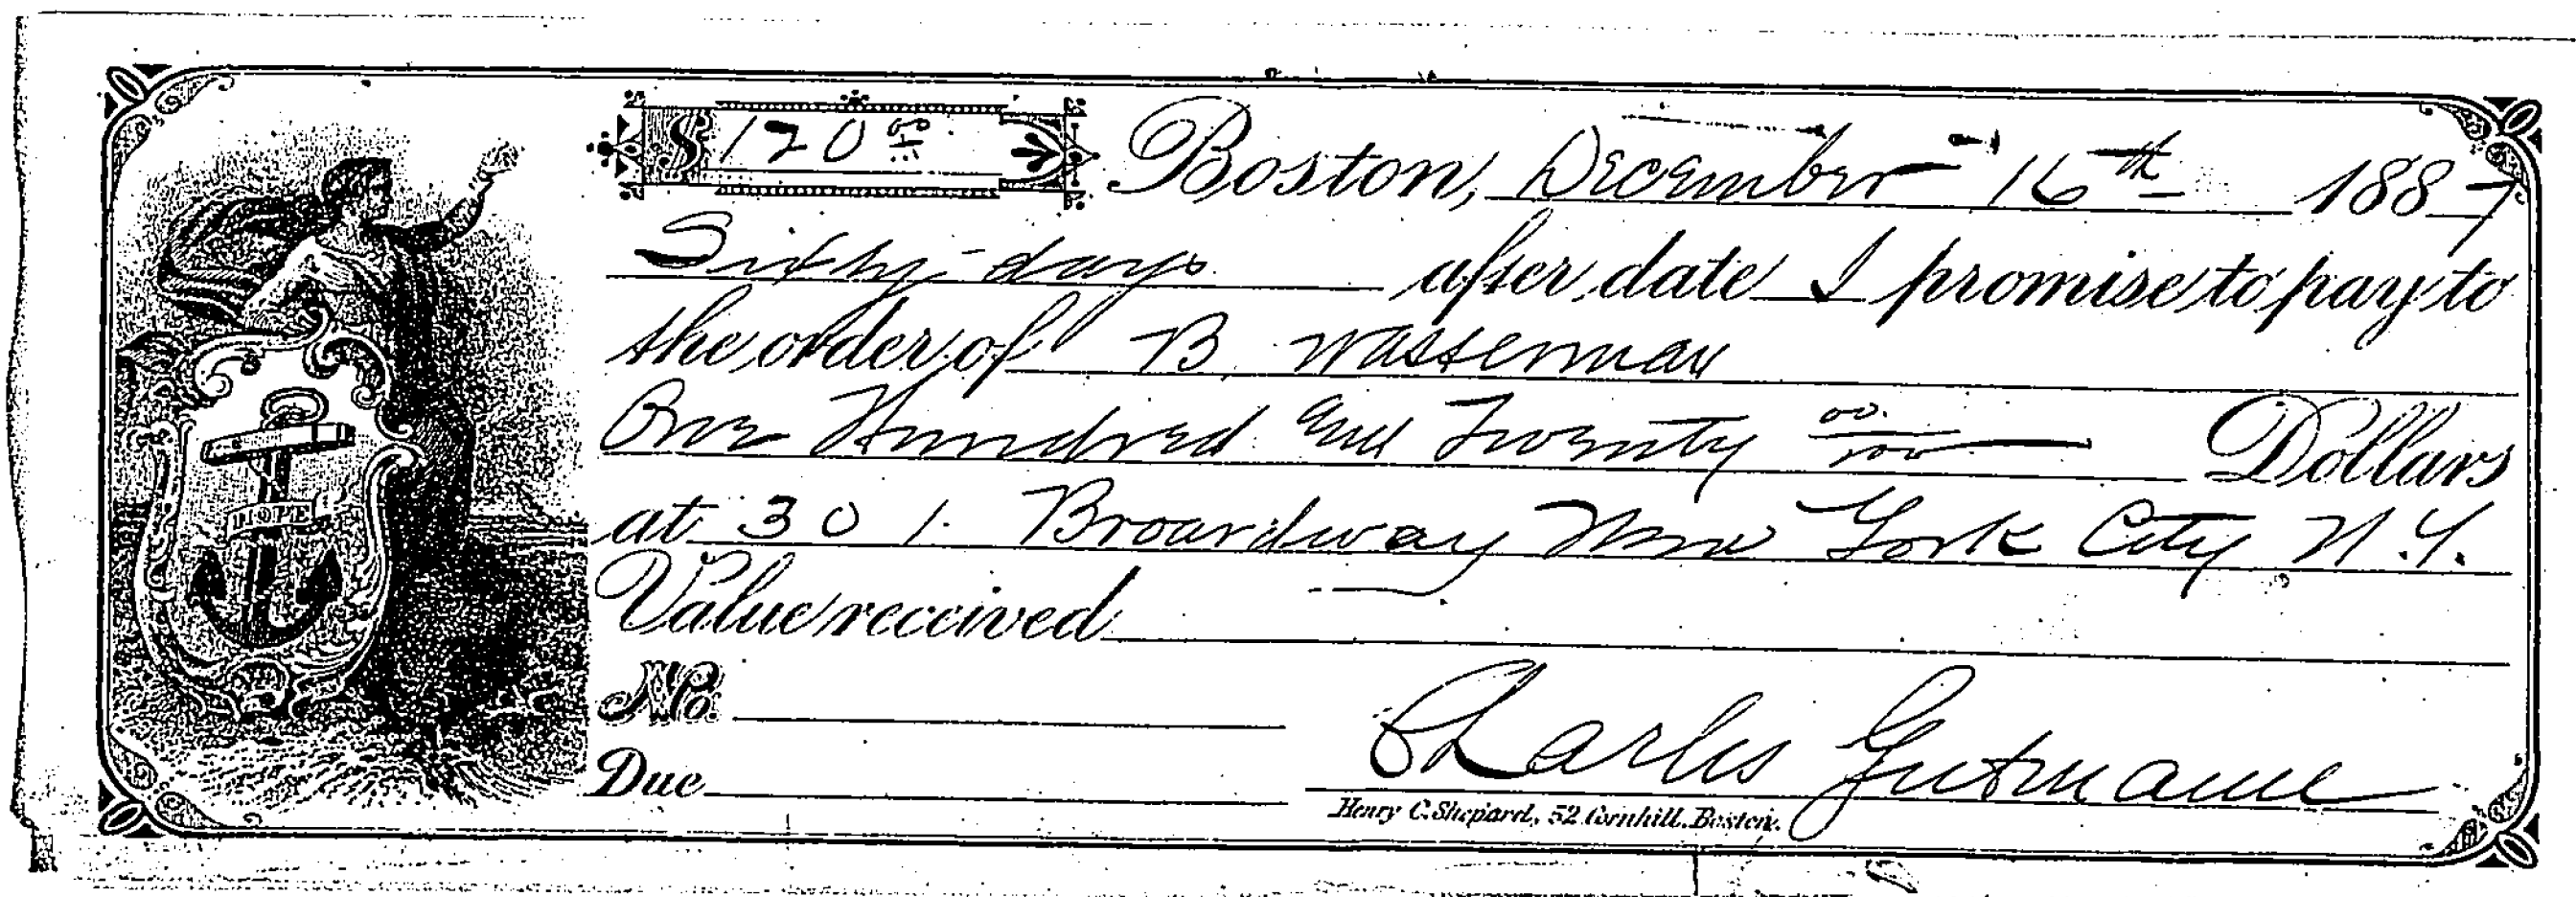 $ 120 00/100 Boston, December 16th 1887
Sixty days after date I promise to pay to
the order of B. Wasserman
One Hundred and Twenty 00/100 Dollars
at 301. Broardway New York City N.Y.
Value received
HOPE
No.
Due
Charles Gutmann
Henry C. Shepard, 52 Cornhill, Boston.